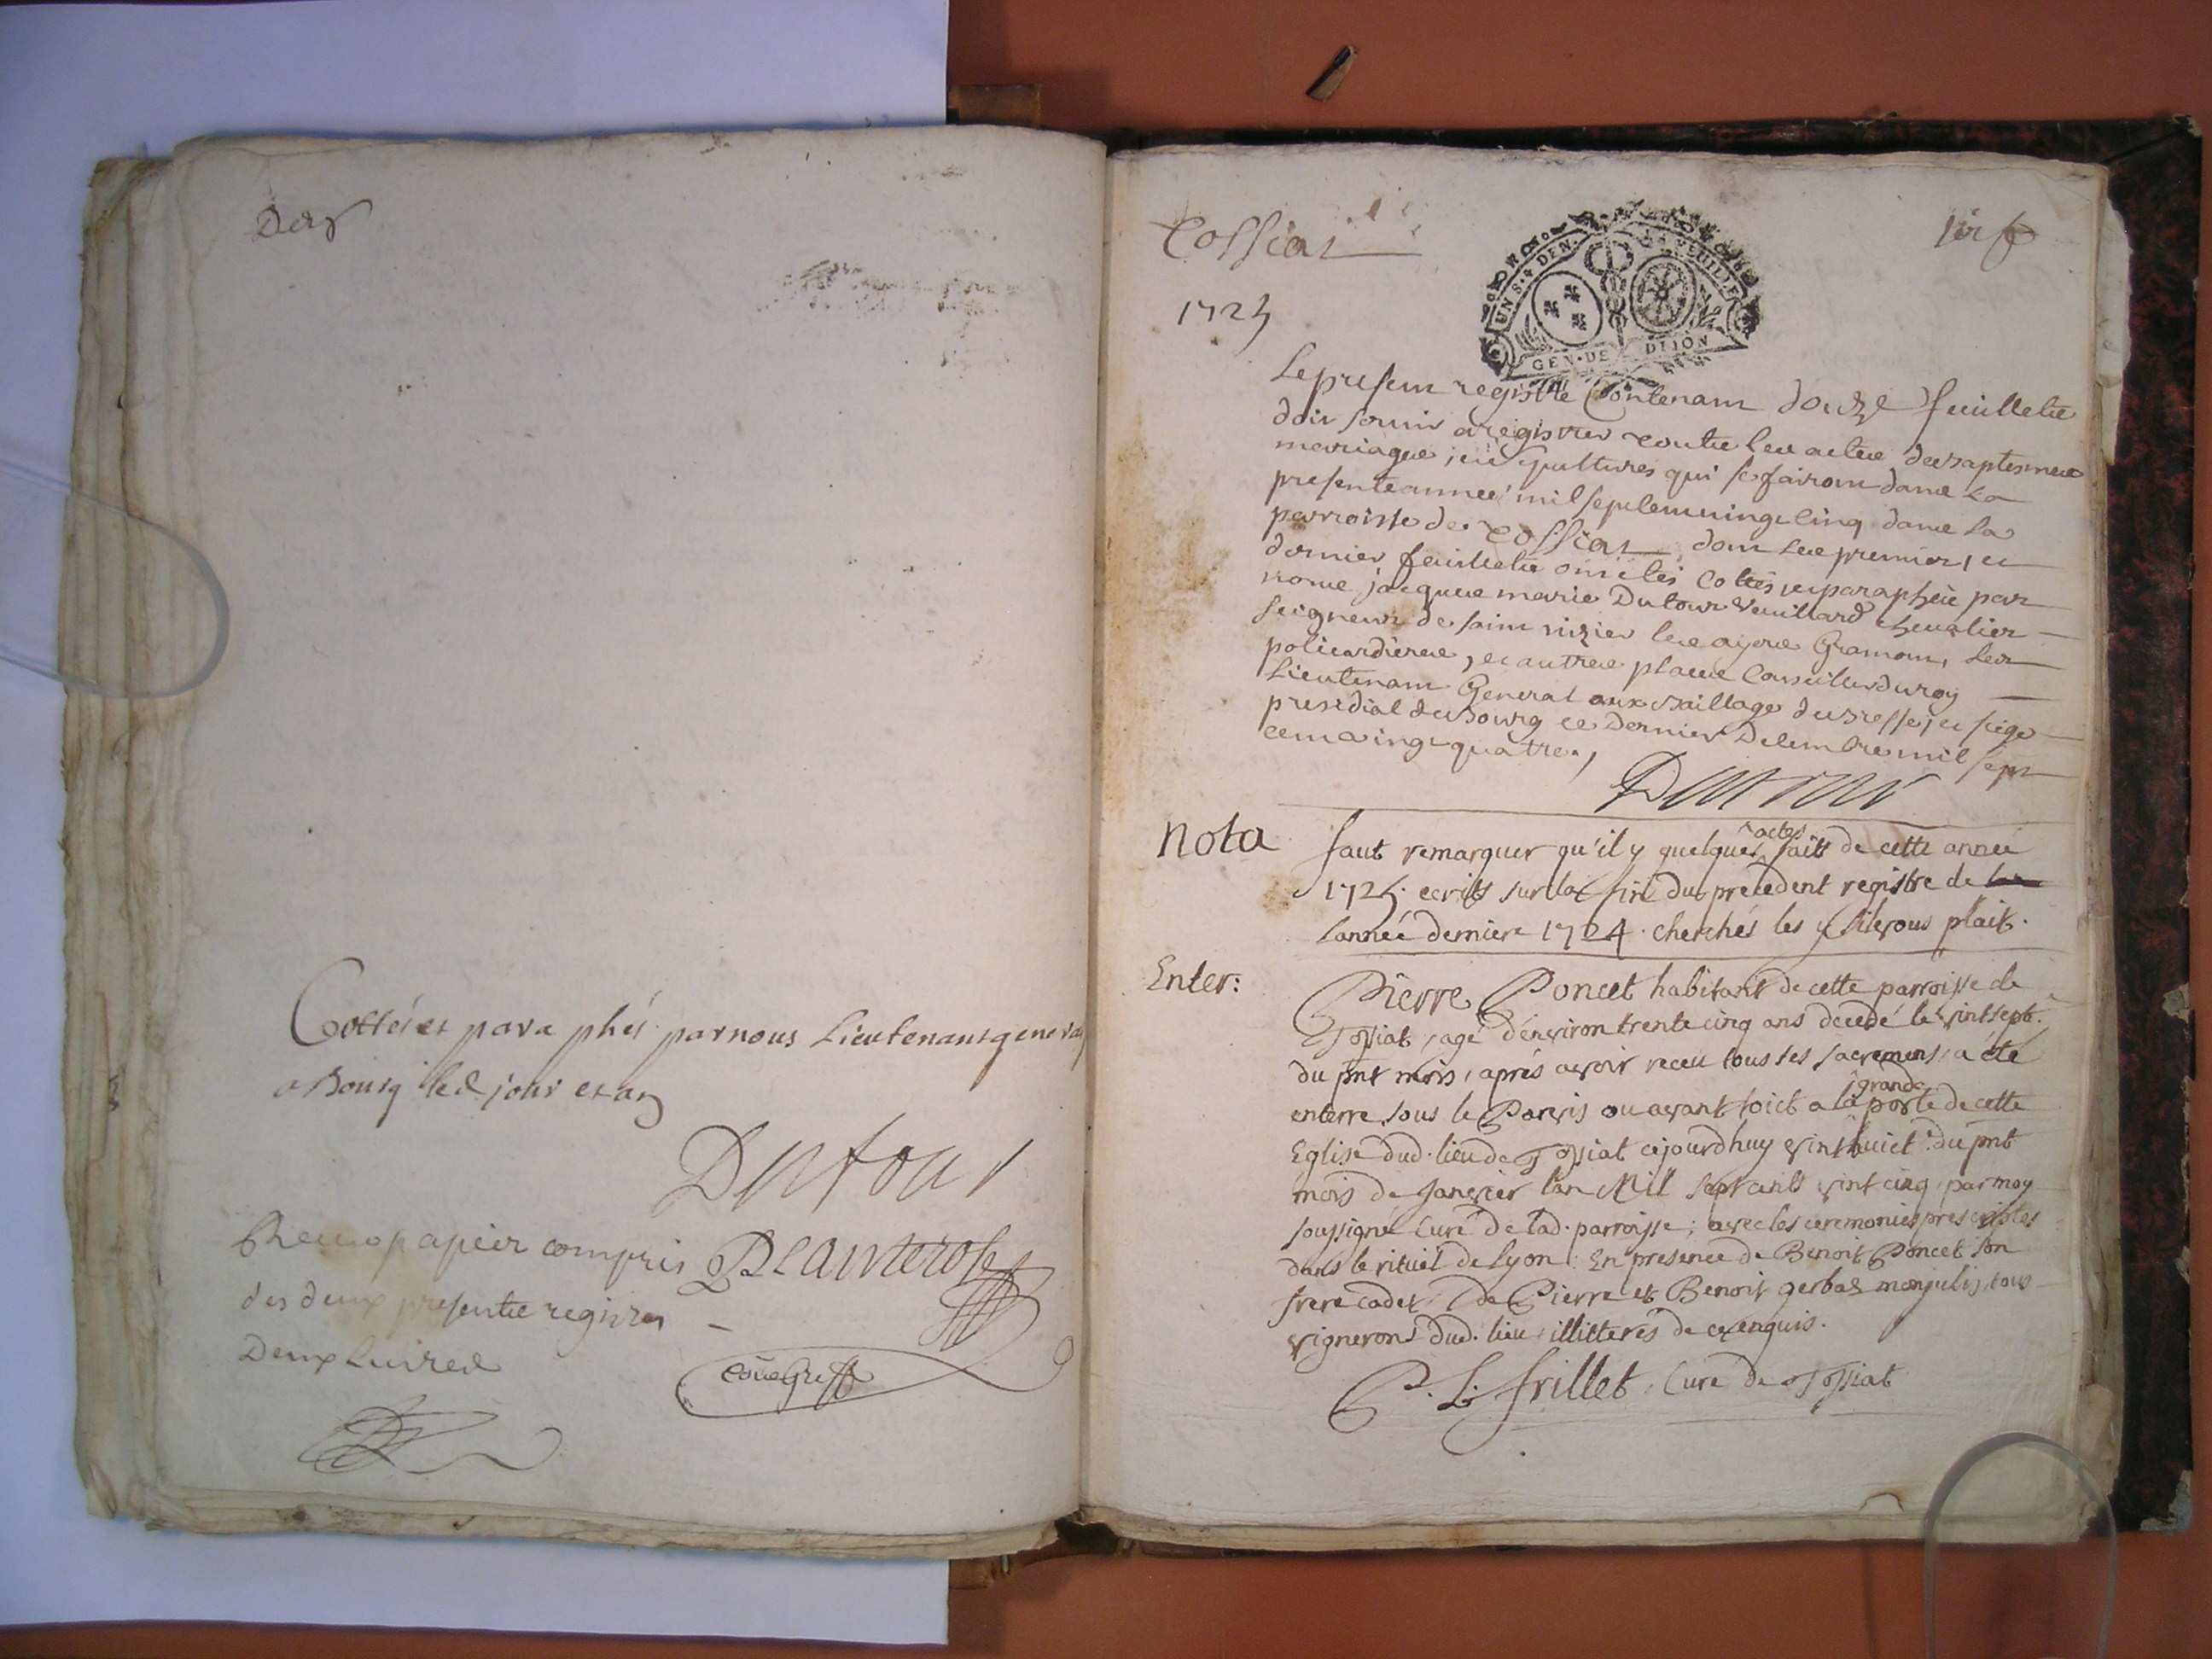 Der
Cottés et paraphés par nous Lieutenant general
a Bourg led jour et an
Dutour
Receu papier compris
des deux presents registres
Deux Livres
Tossiat
1er f
UN S. 4 DEN. LA FEUILLE
GEN. DE DIJON
1725
Le present registre Contenant douze feuillets
doit servir a registrer toutes les actes de baptesmes
mariages, et sepultures qui se fairont dans la
presente année mil sept cent vingt cinq dans la
parroisse de Tossiat dont les premier, et
dernier feuillets ont étés cottés et paraphés par
nous jacques marie Dutour Vuillard chevalier
seigneur de saint nizier les Gramont, les
policardieres, et autres places Conseiller du roy
Lieutenant General aux Baillage de Bresse, et siege
presidial de Bourg ce Dernier Decembre mil sept
cent vingt quatre,
Dutour
Nota
faut remarquer qu'il y quelques actes faits de cette année
1725. ecrits sur la fin du precedent registre de
l'année derniere 1724. cherchés les y s'il vous plait.
Enter:
Pierre Poncet habitant de cette parroisse de
Tossiat, agé d'environ trente cinq ans decedé le vint sept.
du pnt mois, aprés avoir receu tous ses sacremens, a eté
enterre sous le Parvis ou avant toict a la grande porte de cette
Eglise dud. lieu de Tossiat cejourdhuy vint huict du pnt
mois de Janvier l'an Mil sept cents vint cinq, par moy
soussigné Curé de lad. parroisse; avec les ceremonies prescriptes
dans le rituel de Lyon: En presence de Benoit Poncet son
frere cadet, de Pierre et Benoit gerbaz tous
vignerons dud. lieu illitterés de ce enquis.
P. L. frillet, Curé de Tossiat